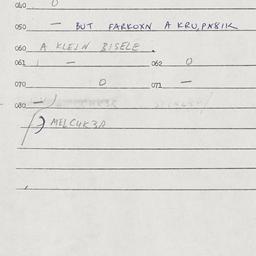 040 0
050 — BUT FARKOXN A KRU,PNBIK
060 A KLEIN BISELE.
061 — 062 0
070 0 071 —
080 —
MELCUKZA